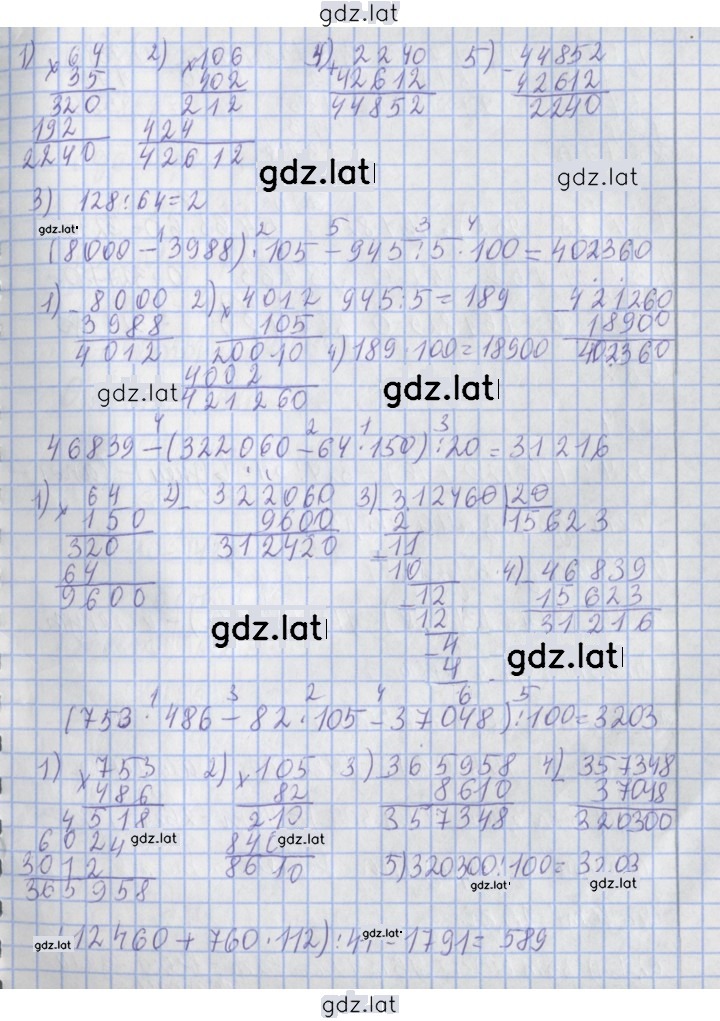 gdz.lat
1) ×64 2) ×106 4) +2240 5) -44852
35 402 42612 42612
320 212 44852 2240
192 424
2240 42612
gdz.lat gdz.lat
3) 128:64=2
gdz.lat
1 2 5 3 4
(8000-3988)·105-945:5·100=402360
1) -8000 2) ×4012 945:5=189 -421260
3988 105 18900
4012 20010 4) 189·100=18900 402360
4002
gdz.lat gdz.lat
421260
4 2 1 3
46839-(322060-64·150):20=31216
1) ×64 2) -322060 3) -312460 20
150 9600 2 15623
320 312420 -11
64 10 4) -46839
9600 -12 15623
12 31216
gdz.lat -4 gdz.lat
4
1 3 2 4 6 5
(753·486-82·105-37048):100=3203
1) ×753 2) ×105 3) 365958 4) 357348
486 82 8610 37048
4518 210 357348 320300
6024 gdz.lat 840 gdz.lat
3012 8610 5) 320300:100=3203
365958 gdz.lat gdz.lat
gdz.lat 12460+760·112):41-1791=589
gdz.lat
gdz.lat